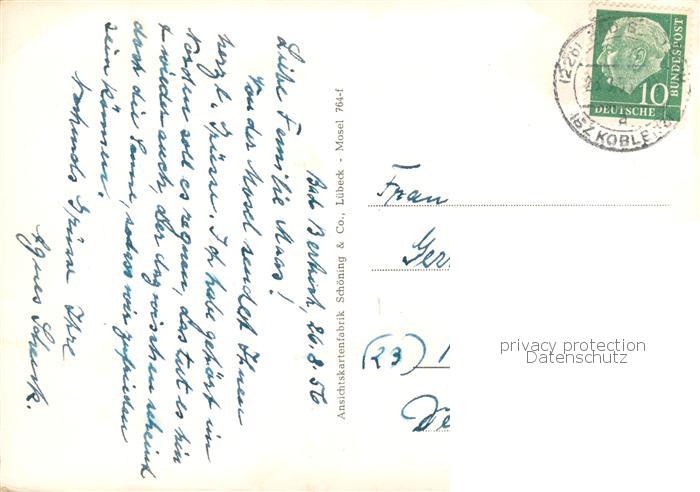 Bad Bertrich, 26.8.56
Liebe Familie Maas!
Von der Mosel sendet Ihnen
herzl. Grüsse. Ich habe gehört im
Norden soll es regnen, das tut es hin
+ wieder auch, aber dazwischen scheint
doch die Sonne, sodass wir zufrieden
sein können.
Nochmals Grüsse Ihre
Agnes
Ansichtskartenfabrik Schöning & Co., Lübeck - Mosel 764-f
DEUTSCHE
BUNDESPOST
10
(22b) BAD
(BZ. KOBLE
a
Frau
Ger
(23)
De
privacy protection
Datenschutz